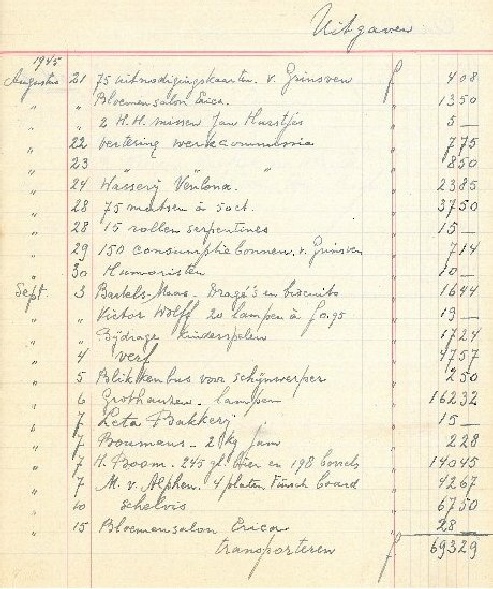 Uitgaven
1945
Augustus 21 75 uitnodigingskaarten v. Grinsven f 408
" " Bloemensalon Erica. " 1350
" " 2 H.H. missen Jan " 5 —
" 22 vertering werkcommissie " 775
" 23 " " 850
" 24 Venlona. " 2385
" 28 75 mutsen à 50ct. " 3750
" 28 15 rollen serpentines " 15 —
" 29 150 consumptiebonnen v. Grinsven " 714
" 30 Humoristen " 10 —
Sept. 3 Bartels- Dragé's en biscuits " 1644
" " Victor Wolff 20 lampen à f 0.95 " 19 —
" " Bijdrage kinderspelen " 1724
" 4 verf " 4757
" 5 Blikkenbus voor schijnwerper " 250
" 6 Grothausen - lampen " 16232
" 7 Leta Bakkerij " 15 —
" 7 Boumans - 2 kg " 228
" 7 H. Boom. 245 gl. bier en 198 " 14045
" 7 M. v. Alphen. 4 platen board " 4267
" 10 Schelvis " 6750
" 15 Bloemensalon Erica " 28 —
transporteren f 69329